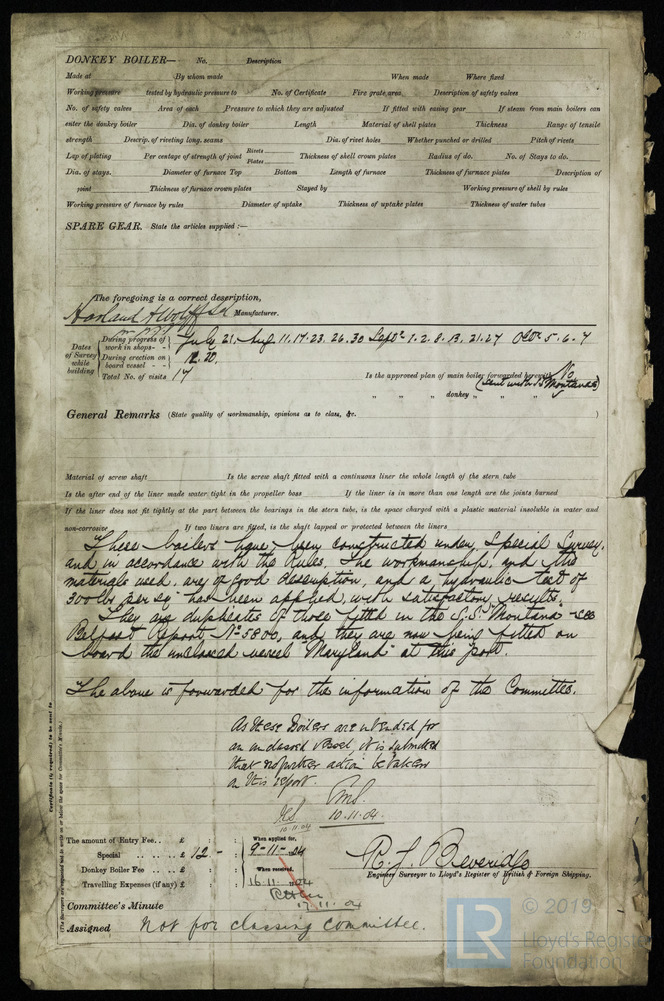 DONKEY BOILER— No. Description
Made at By whom made When made Where fixed
Working pressure tested by hydraulic pressure to No. of Certificate Fire grate area Description of safety valves
No. of safety valves Area of each Pressure to which they are adjusted If fitted with easing gear If steam from main boilers can
enter the donkey boiler Dia. of donkey boiler Length Material of shell plates Thickness Range of tensile
strength Descrip. of riveting long. seams Dia. of rivet holes Whether punched or drilled Pitch of rivets
Lap of plating Per centage of strength of joint Rivets Plates Thickness of shell crown plates Radius of do. No. of Stays to do.
Dia. of stays. Diameter of furnace Top Bottom Length of furnace Thickness of furnace plates Description of
joint Thickness of furnace crown plates Stayed by Working pressure of shell by rules
Working pressure of furnace by rules Diameter of uptake Thickness of uptake plates Thickness of water tubes
SPARE GEAR. State the articles supplied :—
The foregoing is a correct description,
Harland & Wolff Ld Manufacturer.
Dates of Survey while building
During progress of work in shops - - July 21. Aug. 11. 17. 23. 26. 30 Septr 1. 2. 8. 13. 21. 27 Octr 5. 6. 7
During erection on board vessel - - 12. 20.
Total No. of visits 17
Is the approved plan of main boiler forwarded herewith No
(Sent with S.S. Montana)
" " " donkey " " "
General Remarks (State quality of workmanship, opinions as to class, &c. )
Material of screw shaft Is the screw shaft fitted with a continuous liner the whole length of the stern tube
Is the after end of the liner made water tight in the propeller boss If the liner is in more than one length are the joints burned
If the liner does not fit tightly at the part between the bearings in the stern tube, is the space charged with a plastic material insoluble in water and
non-corrosive If two liners are fitted, is the shaft lapped or protected between the liners
These boilers have been constructed under Special Survey,
and in accordance with the Rules. The workmanship, and the
materials used, are of good description, and a hydraulic test of
300 lbs per sq" has been applied with satisfactory results.
They are duplicates of those fitted in the S.S. "Montana" - see
Belfast Report, No 5806, and they are now being fitted on
board the unclassed vessel "Maryland" at this port.
The above is forwarded for the information of the Committee.
As these Boilers are intended for
an unclassed vessel, it is submitted
that no further action be taken
on this report.
10.11.04
10.11.04.
Certificate (if required) to be sent to
(The Surveyors are requested not to write on or below the space for Committee's Minute.)
The amount of Entry Fee . . £ : : When applied for,
Special . . . . . . £ 12 - : 9-11-04
Donkey Boiler Fee . . . £ : : When received,
Travelling Expenses (if any) £ : : 16.11.04
17.11.04
R. J. Beveridge
Engineer Surveyor to Lloyd's Register of British & Foreign Shipping.
Committee's Minute
Assigned Not for classing Committee.
LR
© 2019
Lloyd's Register
Foundation